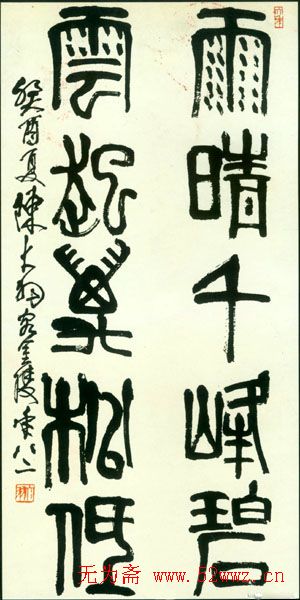 雨晴千峰碧
雲起萬松低
癸酉夏陳大羽客金陵年八二
无为斋 www.52wwz.cn